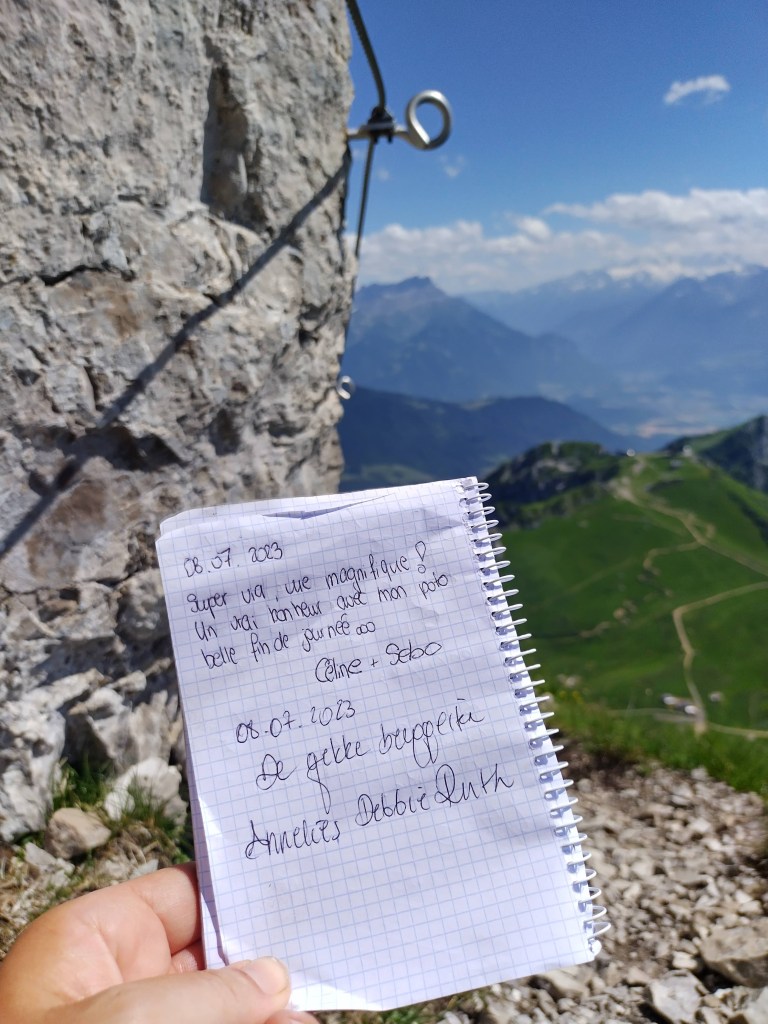 08.07.2023
Super via, vue magnifique !
Un vrai bonheur avec mon poto
belle fin de journée ooo
Céline + Sebo
08.07.2023
De gekke
Annelies Debbie Ruth